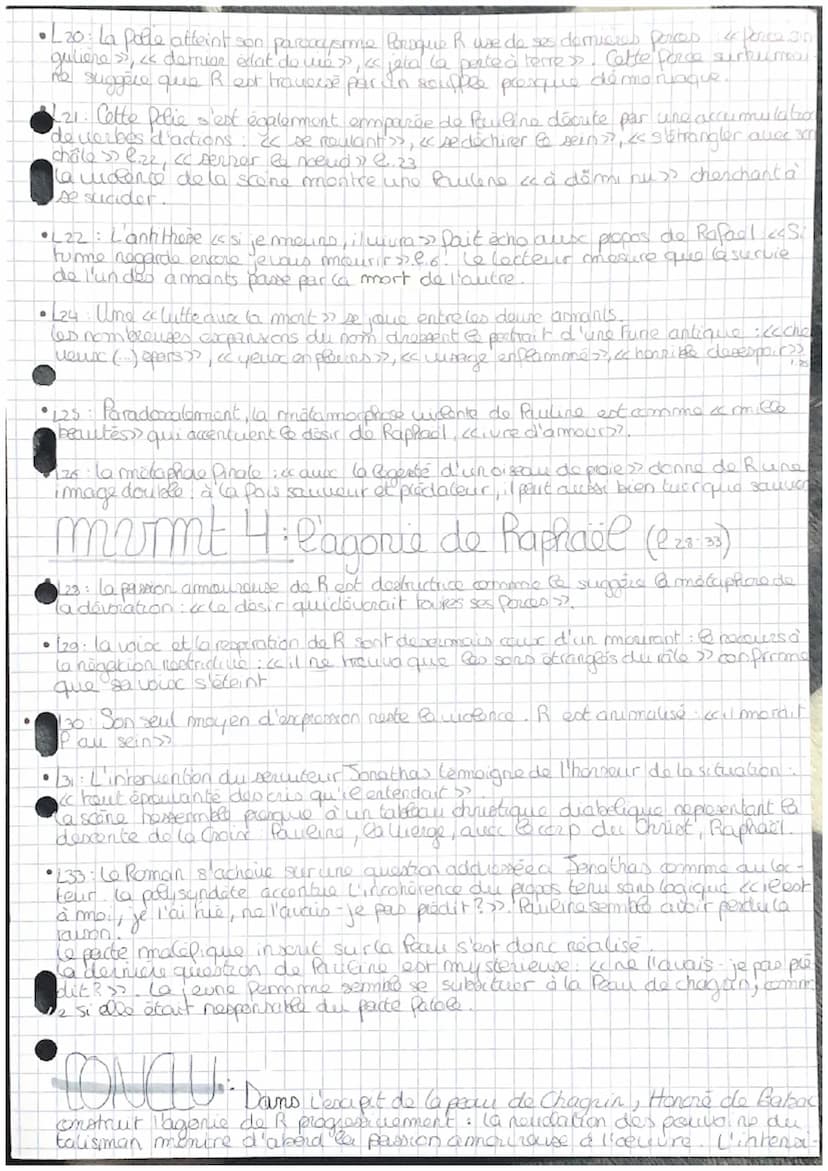 • L20: la folie atteint son paroxysme lorsque R use de ses dernières forces « force sin
gulière », « dernier éclat de vie », « jeta la porte à terre ». Cette force surhumai
ne suggère que R est traversé par un souffle presque démoniaque.
• L21: Cette folie s'est également emparée de Pauline décrite par une accumulation
de verbes d'actions : « se roulant », « se déchirer le sein », « s'étrangler avec son
châle » l.22, « serrer le nœud » l.23
La violence de la scène montre une Pauline « à demi nu » cherchant à
se suicider.
• L22 : L'antithèse « si je meurs, il vivra » fait écho aux propos de Rafael « Si
tu me regarde encore je vais mourir » l.6. Le lecteur mesure que la survie
de l'un des amants passe par la mort de l'autre.
• L24 : Une « lutte avec la mort » se joue entre les deux amants.
Les nombreuses expansions du nom dressent le portrait d'une Furie antique : « che
veux (...) épars », « yeux en pleurs », « visage enflammé », « horrible desespoir »
l.25
• L25 : Paradoxalement, la métamorphose violente de Pauline est comme « mille
beautés » qui accentuent le désir de Raphaël, « ivre d'amour ».
L26 : la métaphore finale : « avec la légerté d'un oiseau de proie » donne de R une
image double : à la fois sauveur et prédateur, il peut aussi bien tuer que sauver
mvmt 4 : l'agonie de Raphaël (l 28-33)
• L28 : la passion amoureuse de R est destructrice comme le suggère la métaphore de
la dévoration : « Le desir qui dévorait toutes ses forces ».
• L29 : la voix et la respiration de R sont desormais ceux d'un mourant : le recours à
la négation restrictive : « il ne trouva que les sons étranglés du râle » confirme
que sa voix s'éteint
• L30 : Son seul moyen d'expression reste la violence. R est animalisé : « il mordit
P au sein »
• L31 : L'intervention du serviteur Jonathas témoigne de l'horreur de la situation :
« tout épouvanté des cris qu'il entendait ».
La scène ressemble presque à un tableau christique diabolique representant la
descente de la Croix : Pauline, la vierge, avec le corp du Christ, Raphaël.
• L33 : Le Roman s'achève sur une question addressée à Jonathas comme au lec-
teur. la polisyndète accentue l'incohérence du propos tenu sans logique « il est
à moi, je l'ai tué, ne l'avais-je pas prédit ? ». Pauline semble avoir perdu la
raison.
Le pacte maléfique inscrit sur la peau s'est donc réalisé.
La dernière question de Pauline est mystérieuse : « ne l'avais-je pas pré
dit ? ». La jeune femme semble se substituer à la Peau de chagrin, comm
e si elle était responsable du pacte fatale.
CONCLU : Dans l'excipit de la peau de Chagrin, Honoré de Balzac
construit l'agonie de R progressivement : la révélation des pouvoirs du
talisman montre d'abord la passion amoureuse à l'œuvre. L'intensi-